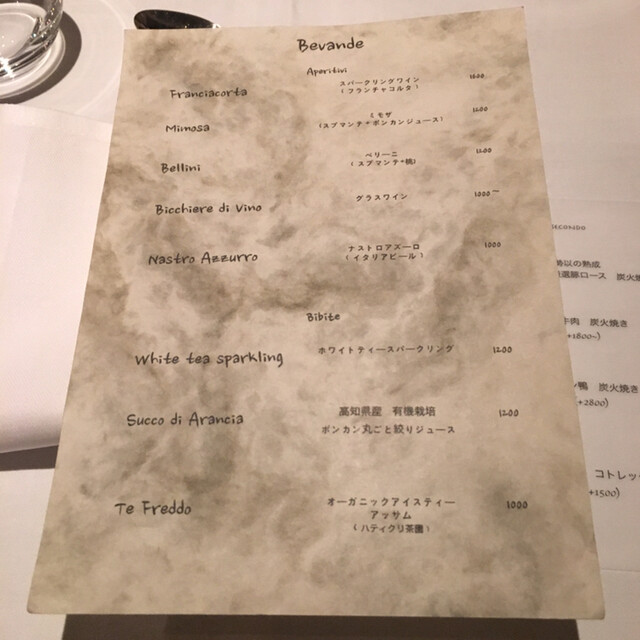 Bevande
Aperitivi
Franciacorta
スパークリングワイン
(フランチャコルタ)
Mimosa
ミモザ
(スプマンテ+ポンカンジュース)
1200
Bellini
ベリーニ
(スプマンテ+桃)
1200
Bicchiere di Vino
グラスワイン
1000~
Nastro Azzurro
ナストロアズーロ
(イタリアビール)
1000
Bibite
White tea sparkling
ホワイトティースパークリング
1200
Succo di Arancia
高知県産 有機栽培
ポンカン丸ごと絞りジュース
1200
Te Freddo
オーガニックアイスティー
アッサム
(ハティクリ茶園)
1000
SECONDO
以の熟成
豚ロース 炭火焼
牛肉 炭火焼き
+1800~)
鴨 炭火焼き
+2800)
コトレッ
+1500)